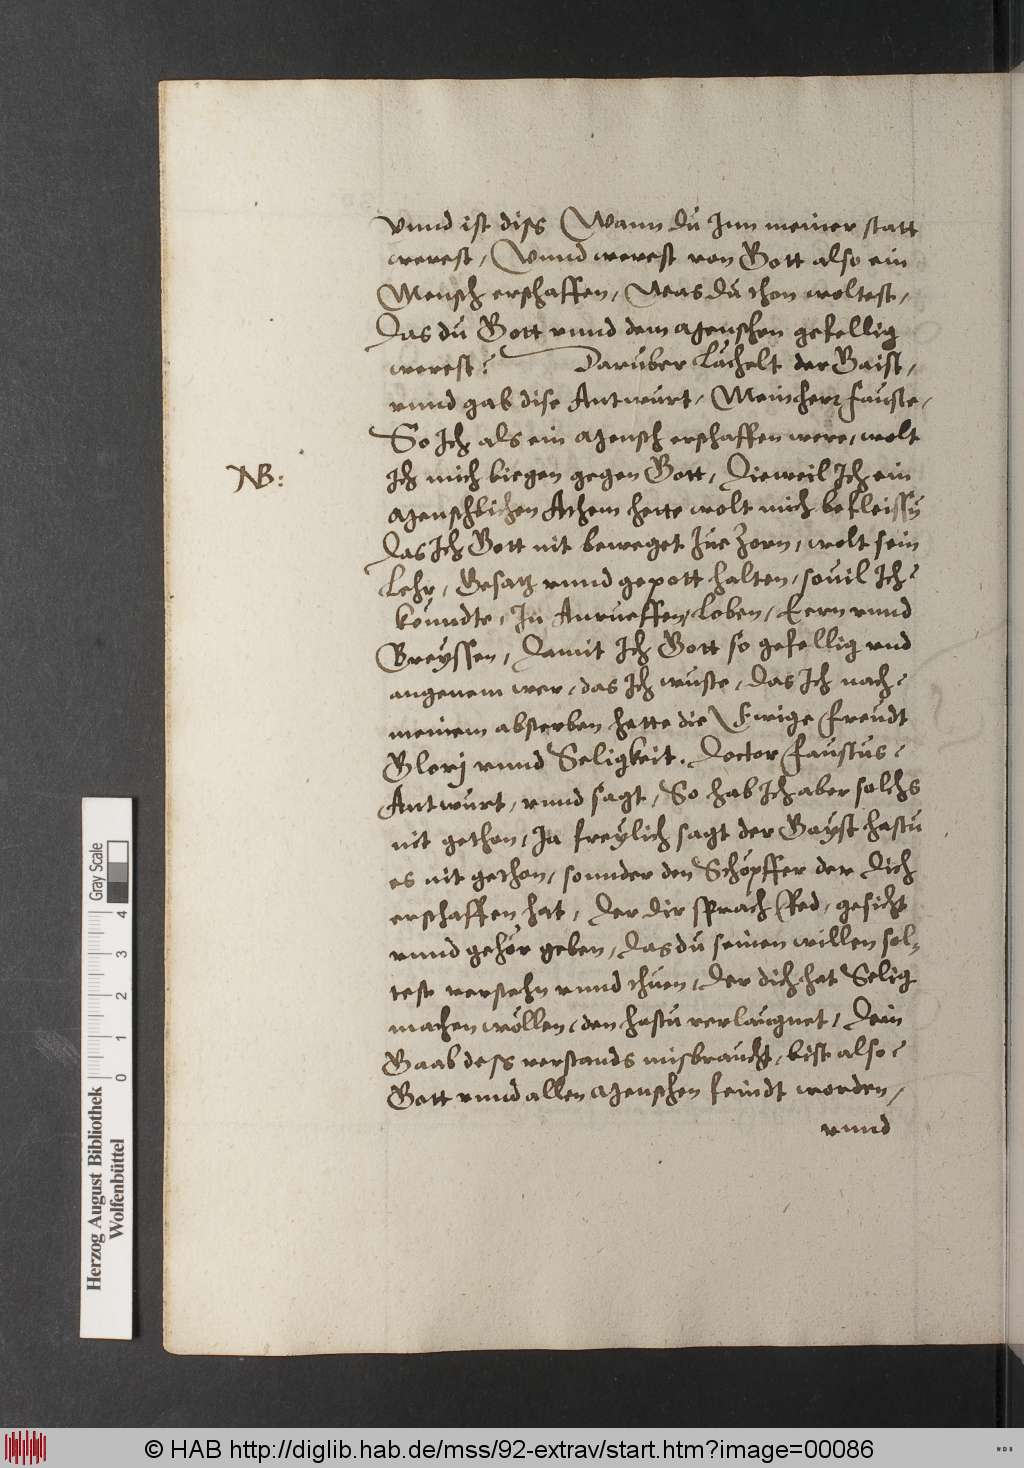 vnnd ist diss Wann du Inn meiner statt
werest, Vnnd werest von Gott also ein
Mensch erschaffen, Was du thon woltest,
Das du Gott vnnd dem Menschen gefellig
werest? Daruber Lächelt der Gaist,
vnnd gab dise Antwurt, Mein herr fauste,
So Ich als ein Mensch erschaffen were, wolt
Ich mich biegen gegen Gott, Dieweil Ich ein
NB:
Menschlichen Athem hette wolt mich befleissen
Das Ich Gott nit beweget Zue Zorn, wolt sein
Lehr, Gesatz vnnd gepott halten, souil Ich
kőnndte, In Anrueffen, Loben, Eern vnnd
Breyssen, Damit Ich Gott so gefellig vnd
angenem wer, das Ich wuste, das Ich nach
meinem absterben hette die Ewige freudt
Glorj vnnd Seligkeit. Doctor faustus
Antwurt, vnnd sagt, So hab Ich aber solchs
nit gethon, Ja freylich sagt der Gayst hastu
es nit gethon, sonnder den Schöpffer der Dich
erschaffen hat, Der Dir sprach Red, gesicht
vnnd gehör geben, Das du seinen willen sol-
test verstehn vnnd thuen, Der dich hat Selig
machen wöllen, den hastu verlaugnet, Dein
Gaab dess verstands misbraucht, bist also
Gott vnnd allen Menschen feindt worden,
vnnd
Herzog August Bibliothek
Wolfenbüttel
0 1 2 3 4
Gray Scale
© HAB http://diglib.hab.de/mss/92-extrav/start.htm?image=00086